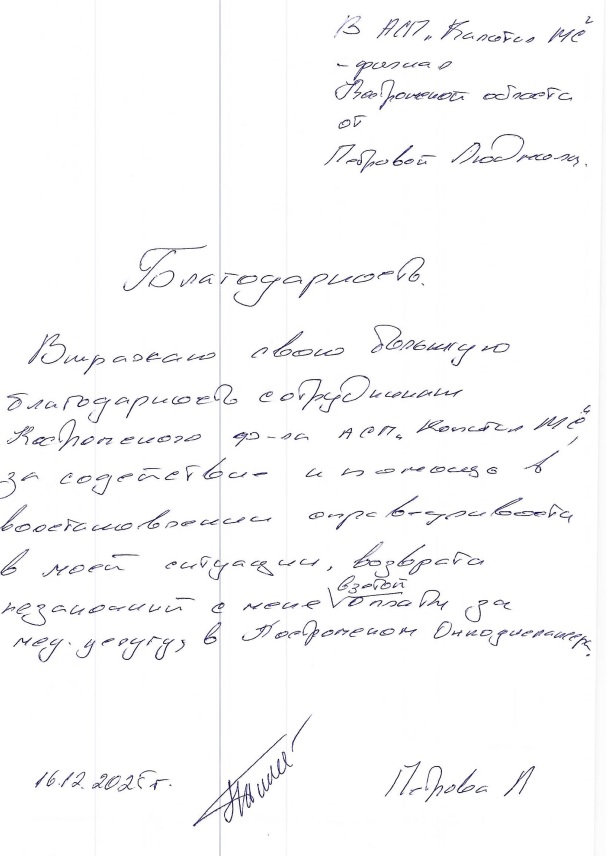 В АСП „Капитал МС"
- филиал
Костромской области
от
Петровой Людмилы.
Благодарность.
Выражаю свою большую
благодарность сотрудникам
Костромского ф-ла АСП „Капитал МС",
за содействие и помощь в
восстановлении справедливости
в моей ситуации, возврата
незаконной с меня взятой оплаты за
мед. услугу, в Костромском Онкодиспансере.
16.12.2025 г.
Петрова Л